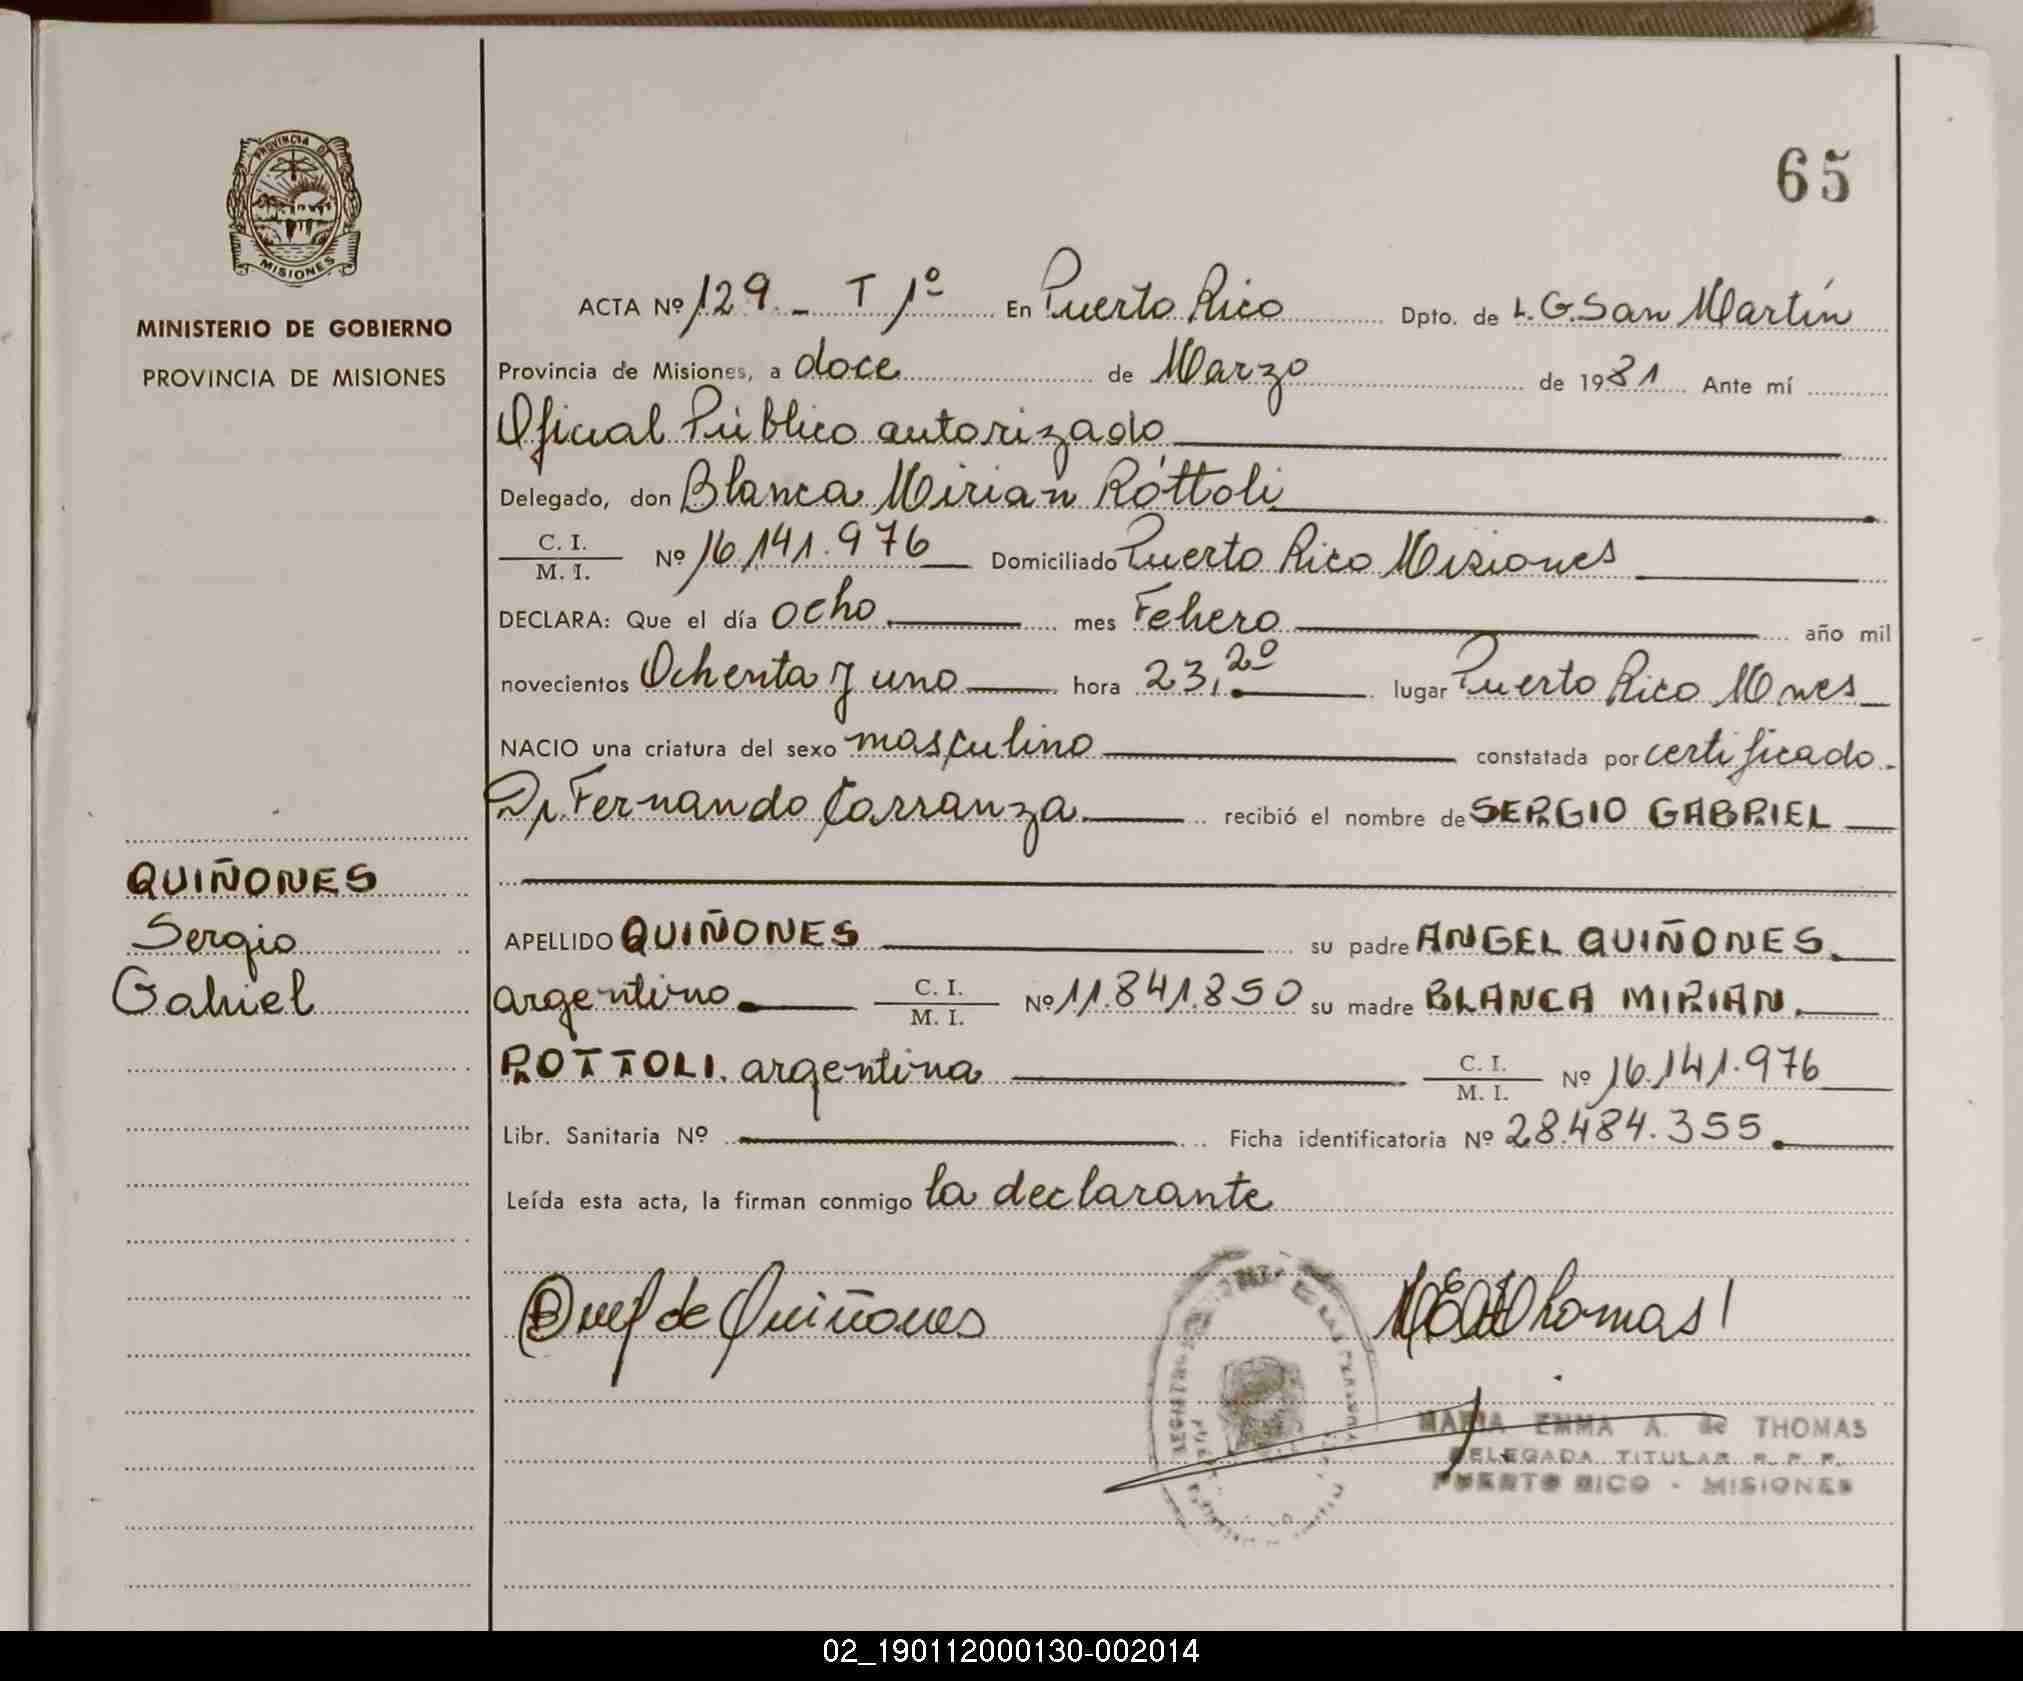 65
PROVINCIA DE
MISIONES
MINISTERIO DE GOBIERNO
PROVINCIA DE MISIONES
ACTA Nº 129.- T 1º En Puerto Rico Dpto. de L.G.San Martín
Provincia de Misiones, a doce de Marzo de 1981 Ante mí
Oficial Público autorizado
Delegado, don Blanca Mirian Róttoli
C. I.
M. I. Nº 16.141.976 Domiciliado Puerto Rico Misiones
DECLARA: Que el día ocho mes Febero año mil
novecientos Ochenta y uno hora 23,20 lugar Puerto Rico Mnes
NACIO una criatura del sexo masculino constatada por certificado.
Dr. Fernando Carranza recibió el nombre de SERGIO GABRIEL
QUIÑONES
Sergio
Gabriel
APELLIDO QUIÑONES su padre ANGEL QUIÑONES.
argentino. C. I.
M. I. Nº 11.841.850 su madre BLANCA MIRIAN.
ROTTOLI. argentina C. I.
M. I. Nº 16.141.976
Libr. Sanitaria Nº Ficha identificatoria Nº 28.484.355.
Leída esta acta, la firman conmigo la declarante
de Quiñones
Thomas
MARIA EMMA A. de THOMAS
DELEGADA TITULAR R. P. P.
PUERTO RICO - MISIONES
02_190112000130-002014